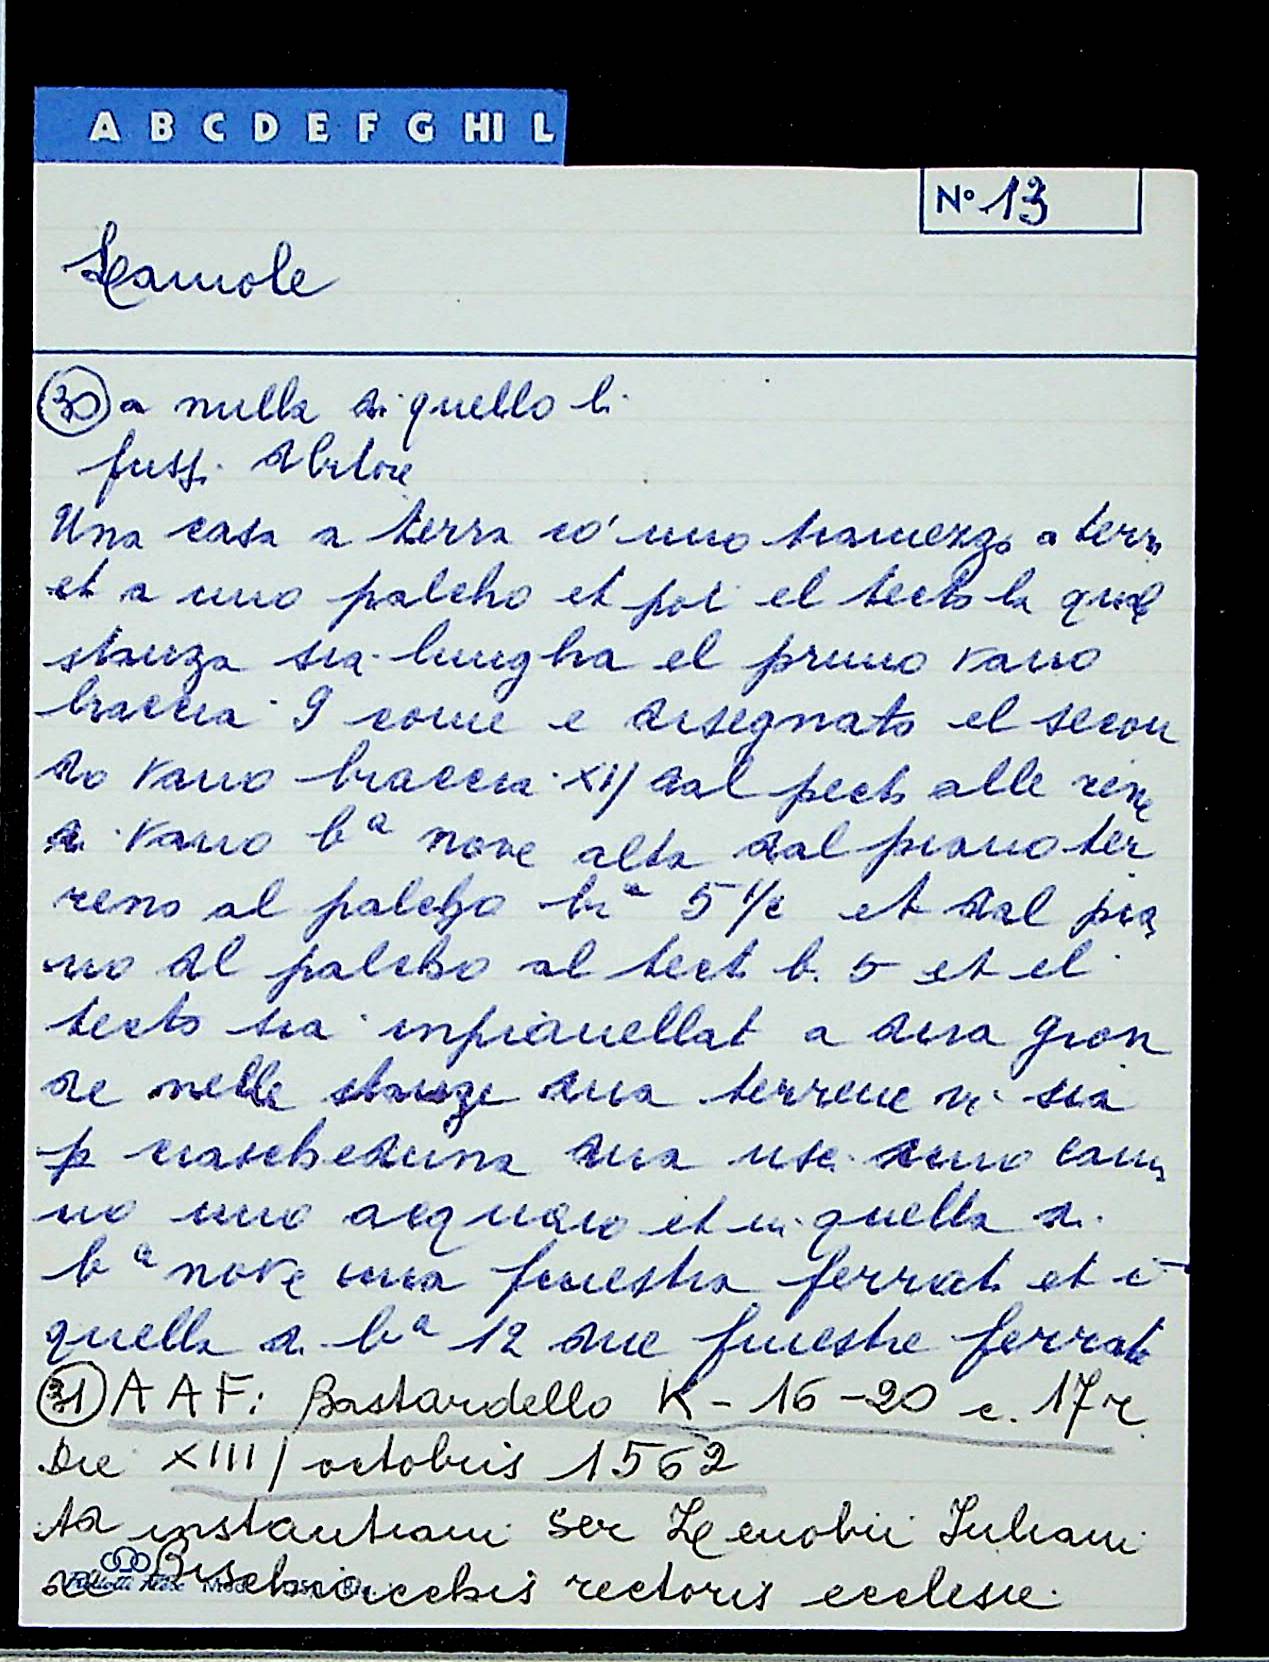 A B C D E F G HI L
N° 13
Lamole
30 a nulla di quello li
fussi debitore
Una casa a terra co' uno tramezzo a terra
et a uno palcho et poi el tecto la quale
stanza sia lungha el primo vano
braccia 9 come e disegnato el secon
do vano braccia XIJ dal pecto alle rene
di vano b^a nove alta dal piano ter
reno al palcho br^a 5 1/2 et dal pia
no del palcho al tecto b. 5 et el
tecto sia inpianellato a dua gron
de nelle stanze dua terrene vi sia
p ciascheduna dua usci uno cami
no uno acquaio et in quella di
b^a nove una finestra ferrata et i
quella di b^a 12 due finestre ferrate
31 A A F: Bastardello K - 16 - 20 c. 17 r
Die XIII/ octobris 1562
Ad instantiam ser Zenobii Iuliani
de Bischoicchis rectoris ecclesie